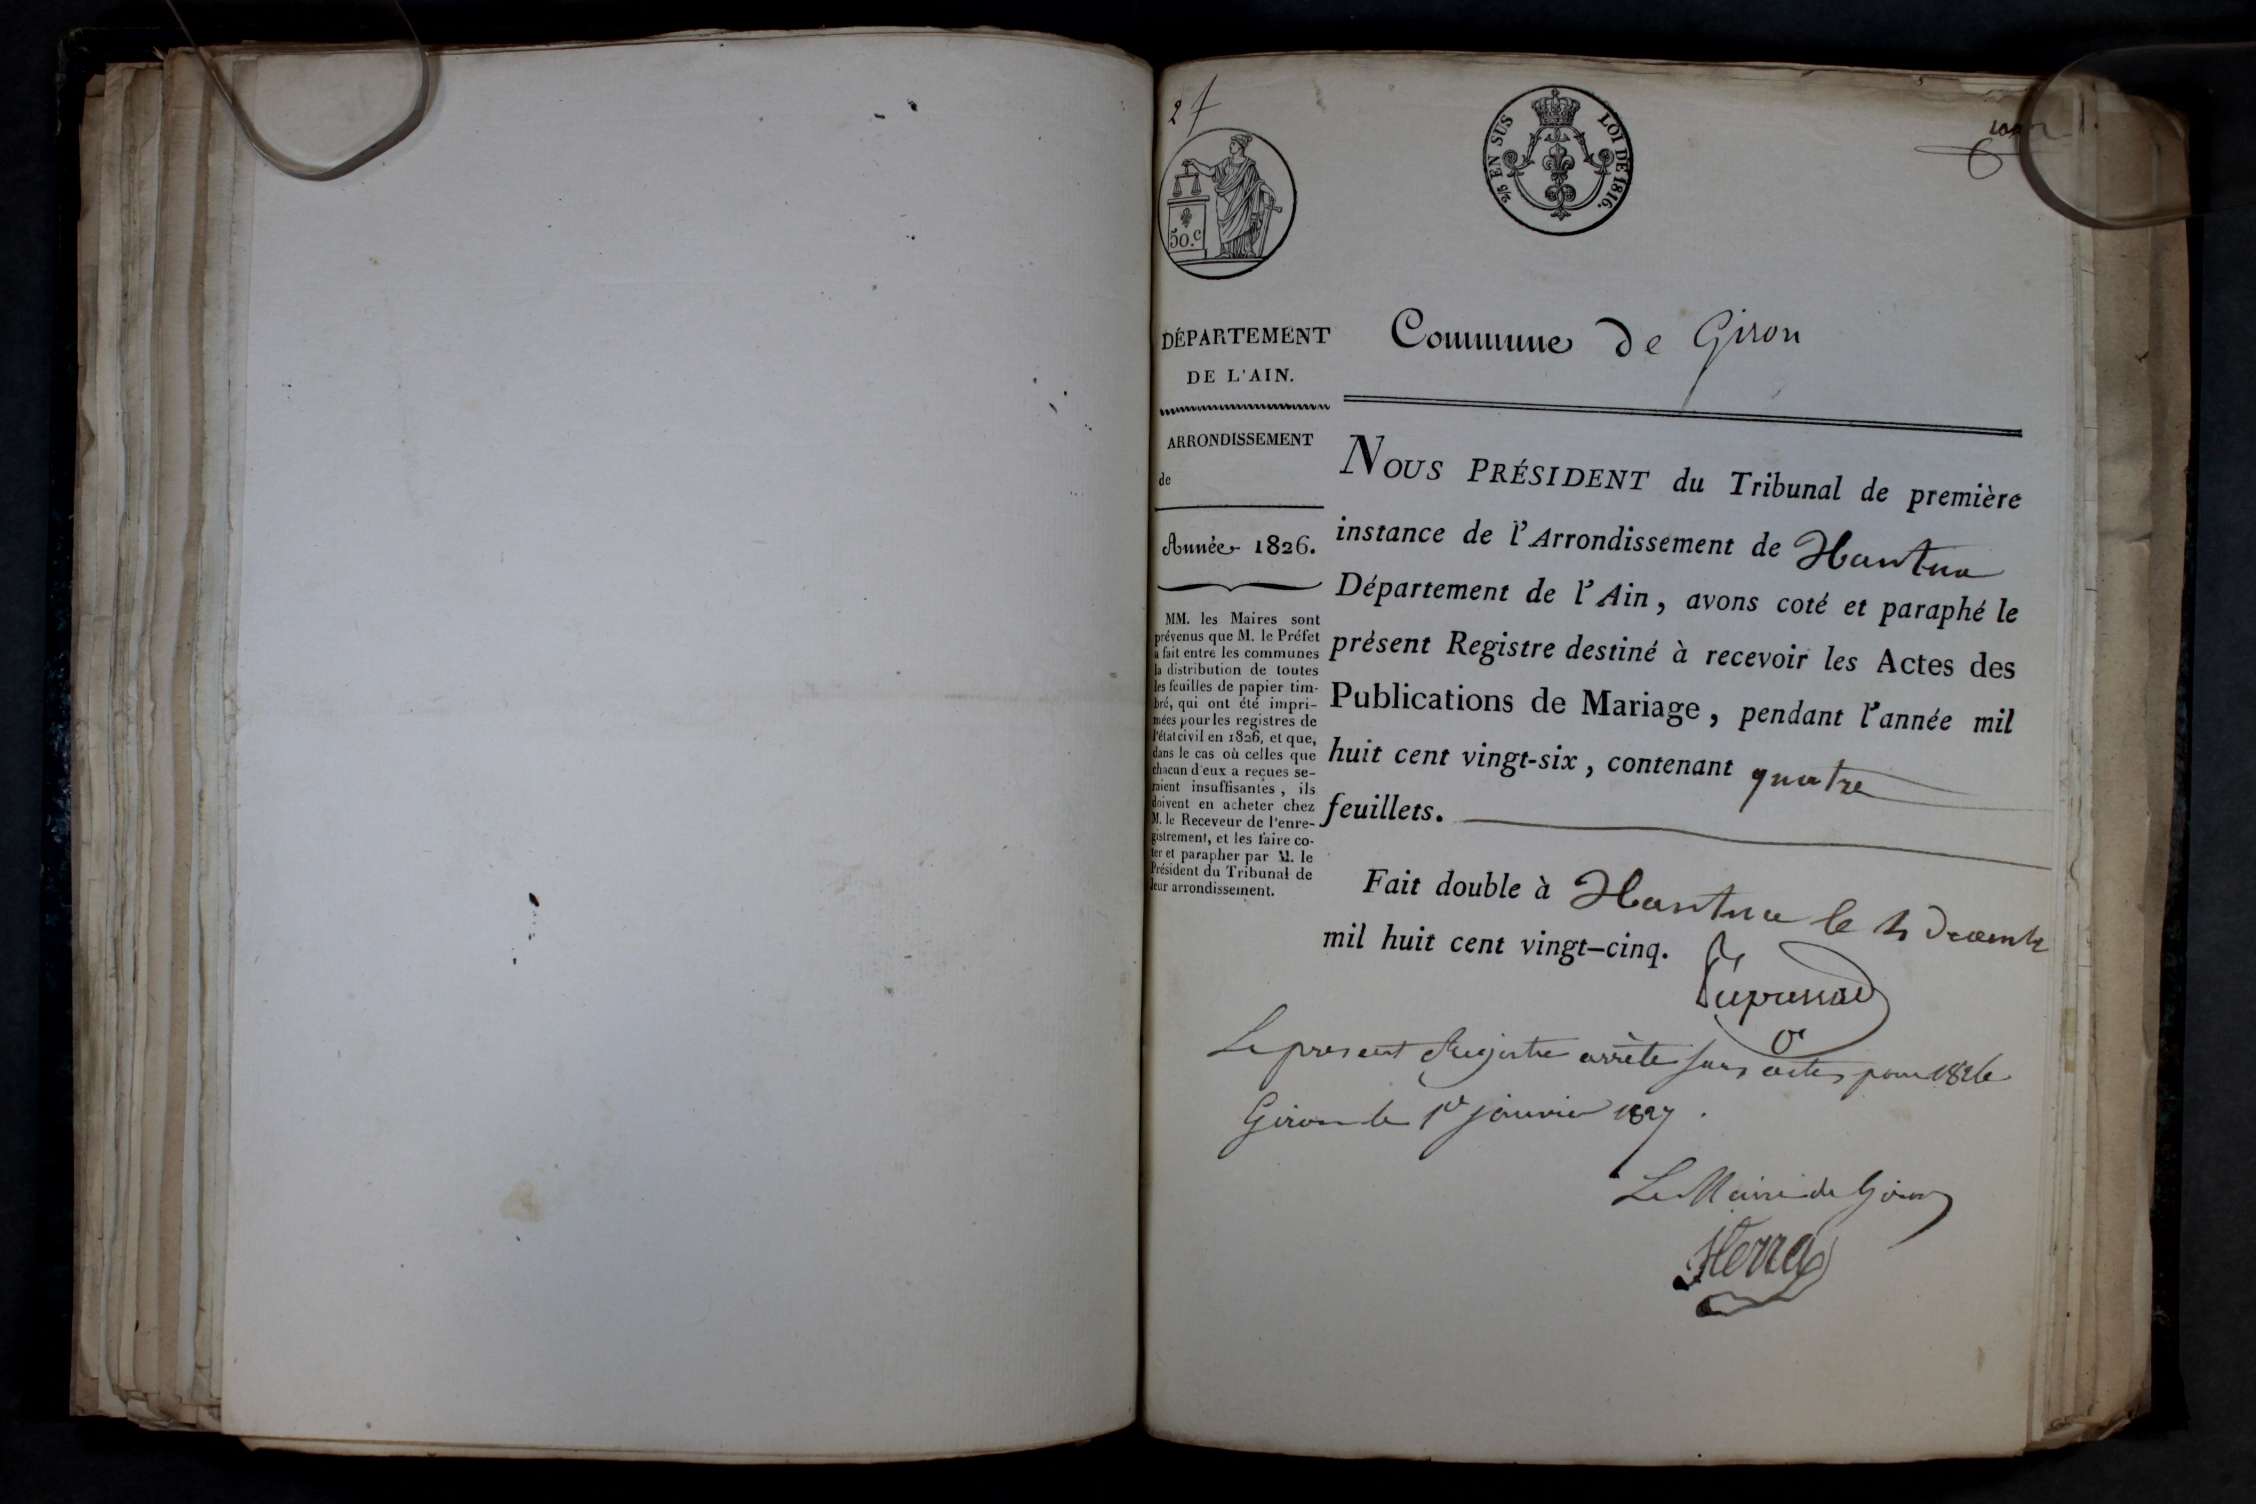 27
2/5 EN SUS LOI DE 1816.
50.c
DÉPARTEMENT
DE L'AIN.
ARRONDISSEMENT
de
Année 1826.
MM. les Maires sont
prévenus que M. le Préfet
a fait entre les communes
la distribution de toutes
les feuilles de papier tim-
bré, qui ont été impri-
mées pour les registres de
l'état civil en 1826, et que,
dans le cas où celles que
chacun d'eux a reçues se-
raient insuffisantes, ils
doivent en acheter chez
M. le Receveur de l'enre-
gistrement, et les faire co-
ter et parapher par M. le
Président du Tribunal de
leur arrondissement.
Commune de Giron
NOUS PRÉSIDENT du Tribunal de première
instance de l'Arrondissement de Nantua
Département de l'Ain, avons coté et paraphé le
présent Registre destiné à recevoir les Actes des
Publications de Mariage, pendant l'année mil
huit cent vingt-six, contenant quatre
feuillets.
Fait double à Nantua le Decembre
mil huit cent vingt-cinq.
Le present Registre arrêté sans actes pour 1826
Giron le 1er janvier 1827.
Le Maire de Giron